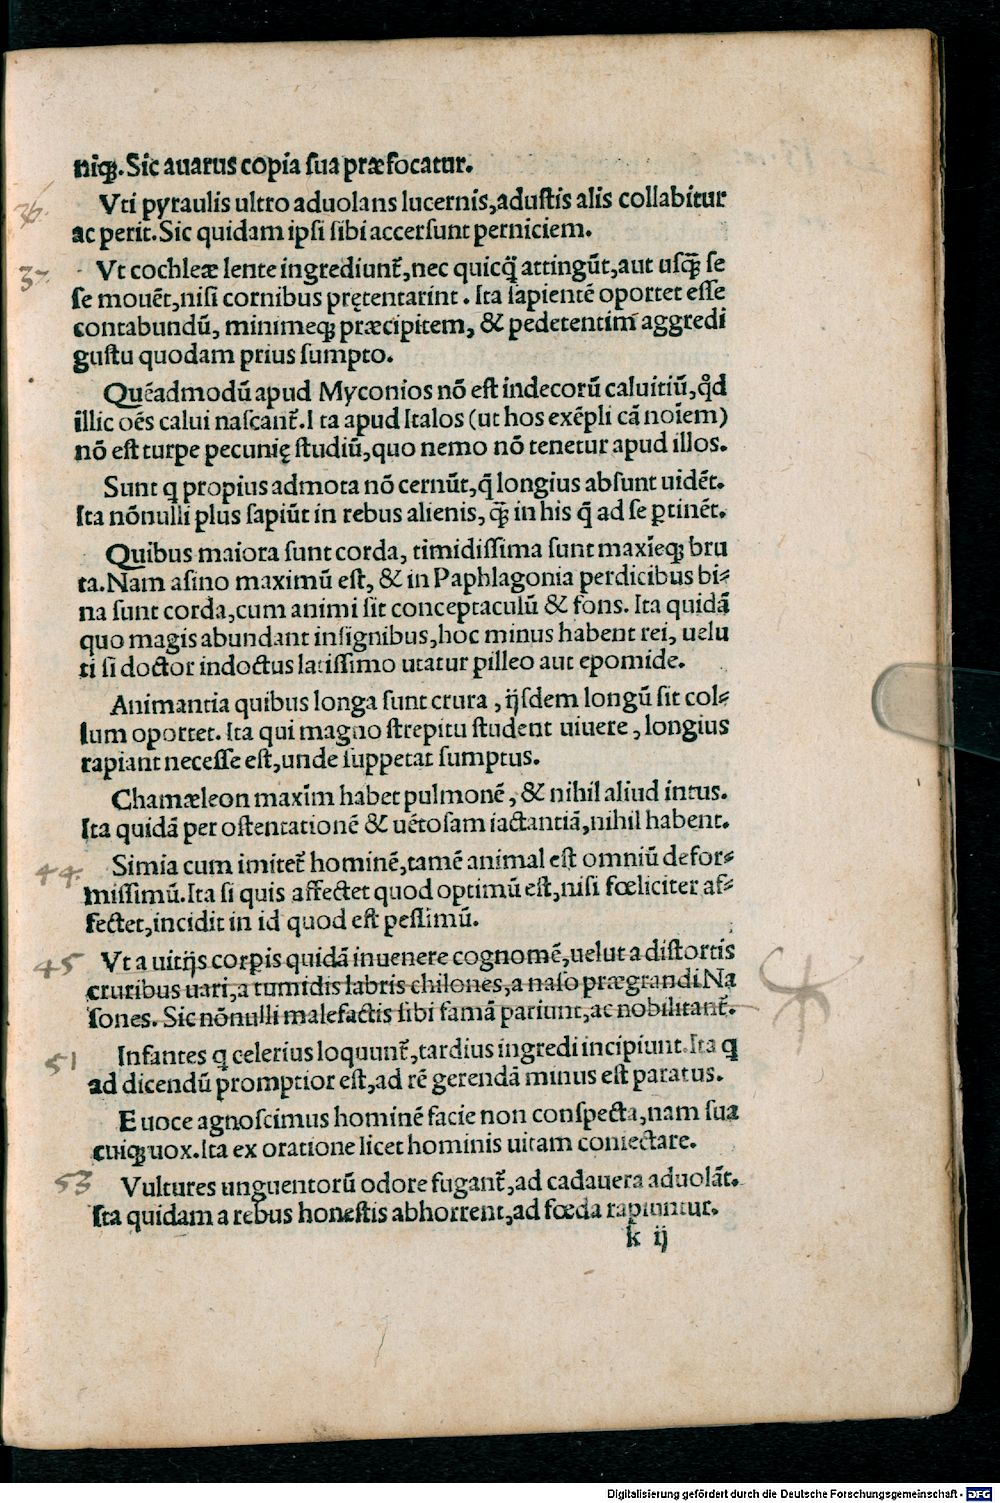 niqꝫ. Sic auarus copia sua præfocatur.
36.
Vti pyraulis ultro aduolans lucernis, adustis alis collabitur
ac perit. Sic quidam ipsi sibi accersunt perniciem.
37.
Vt cochleæ lente ingrediunt᷑, nec quicq̃ attingũt, aut usq̃ se
se mouẽt, nisi cornibus prętentarint. Ita sapientẽ oportet esse
contabundũ, minimeqꝫ præcipitem, & pedetentim aggredi
gustu quodam prius sumpto.
Quẽadmodũ apud Myconios nõ est indecorũ caluitiũ, qd̾
illic oẽs calui nascant᷑. Ita apud Italos (ut hos exẽpli cã noĩem)
nõ est turpe pecunię studiũ, quo nemo nõ tenetur apud illos.
Sunt q propius admota nõ cernũt, q̃ longius absunt uidẽt.
Ita nõnulli plus sapiũt in rebus alienis, q̃ in his q̃ ad se ꝑtinẽt.
Quibus maiora sunt corda, timidissima sunt maxĩeqꝫ bru
ta. Nam asino maximũ est, & in Paphlagonia perdicibus bi⸗
na sunt corda, cum animi sit conceptaculũ & fons. Ita quidã
quo magis abundant insignibus, hoc minus habent rei, uelu
ti si doctor indoctus latissimo utatur pilleo aut epomide.
Animantia quibus longa sunt crura, ijsdem longũ sit col⸗
lum oportet. Ita qui magno strepitu student uiuere, longius
rapiant necesse est, unde suppetat sumptus.
Chamæleon maxĩm habet pulmonẽ, & nihil aliud intus.
Ita quidã per ostentationẽ & uẽtosam iactantiã, nihil habent.
44.
Simia cum imitet᷑ hominẽ, tamẽ animal est omniũ defor⸗
missimũ. Ita si quis affectet quod optimũ est, nisi fœliciter af⸗
fectet, incidit in id quod est pessimũ.
45
Vt a uitijs corꝑis quidã inuenere cognomẽ, uelut a distortis
cruribus uari, a tumidis labris chilones, a naso prægrandi Na
sones. Sic nõnulli malefactis sibi famã pariunt, ac nobilitant᷑.
51
Infantes q celerius loquunt᷑, tardius ingredi incipiunt. Ita q
ad dicendũ promptior est, ad rẽ gerendã minus est paratus.
E uoce agnoscimus hominẽ facie non conspecta, nam sua
cuiqꝫ uox. Ita ex oratione licet hominis uitam coniectare.
53
Vultures unguentorũ odore fugant᷑, ad cadauera aduolãt.
Ita quidam a rebus honestis abhorrent, ad fœda rapiuntur.
k ij
Digitalisierung gefördert durch die Deutsche Forschungsgemeinschaft - DFG